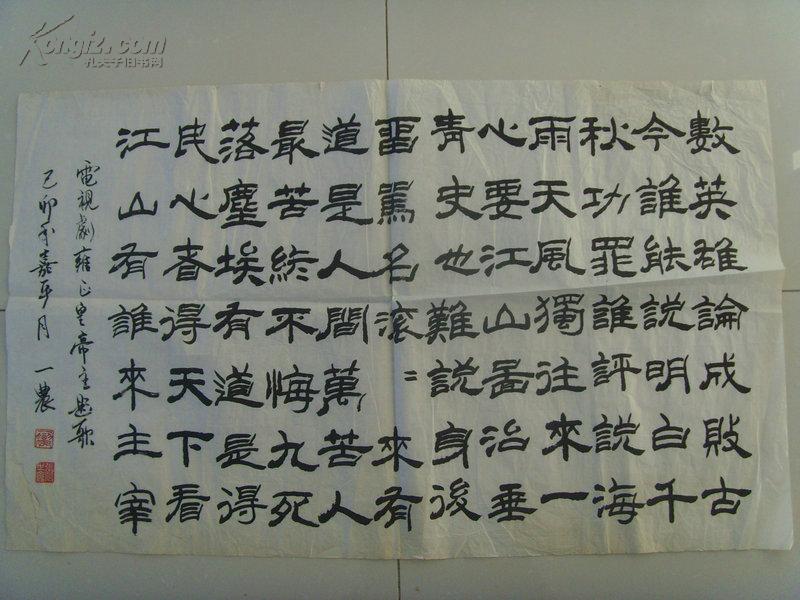 Kongfz.com
孔夫子旧书网
數英雄論成敗古
今誰能說明白千
秋功罪誰評說海
雨天風獨往來一
心要江山啚治垂
青史也難說身後
畱罵名滾〻來有
道是人間萬苦人
最苦終不悔九死
落塵埃有道是得
民心者得天下看
江山有誰來主宰
電視劇雍正皇帝主題歌
己卯年嘉平月 一農